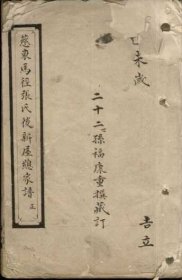 未歲 吉立
二十二孫福康重撰藏訂
慈東馬徑張氏後新屋總家譜 正